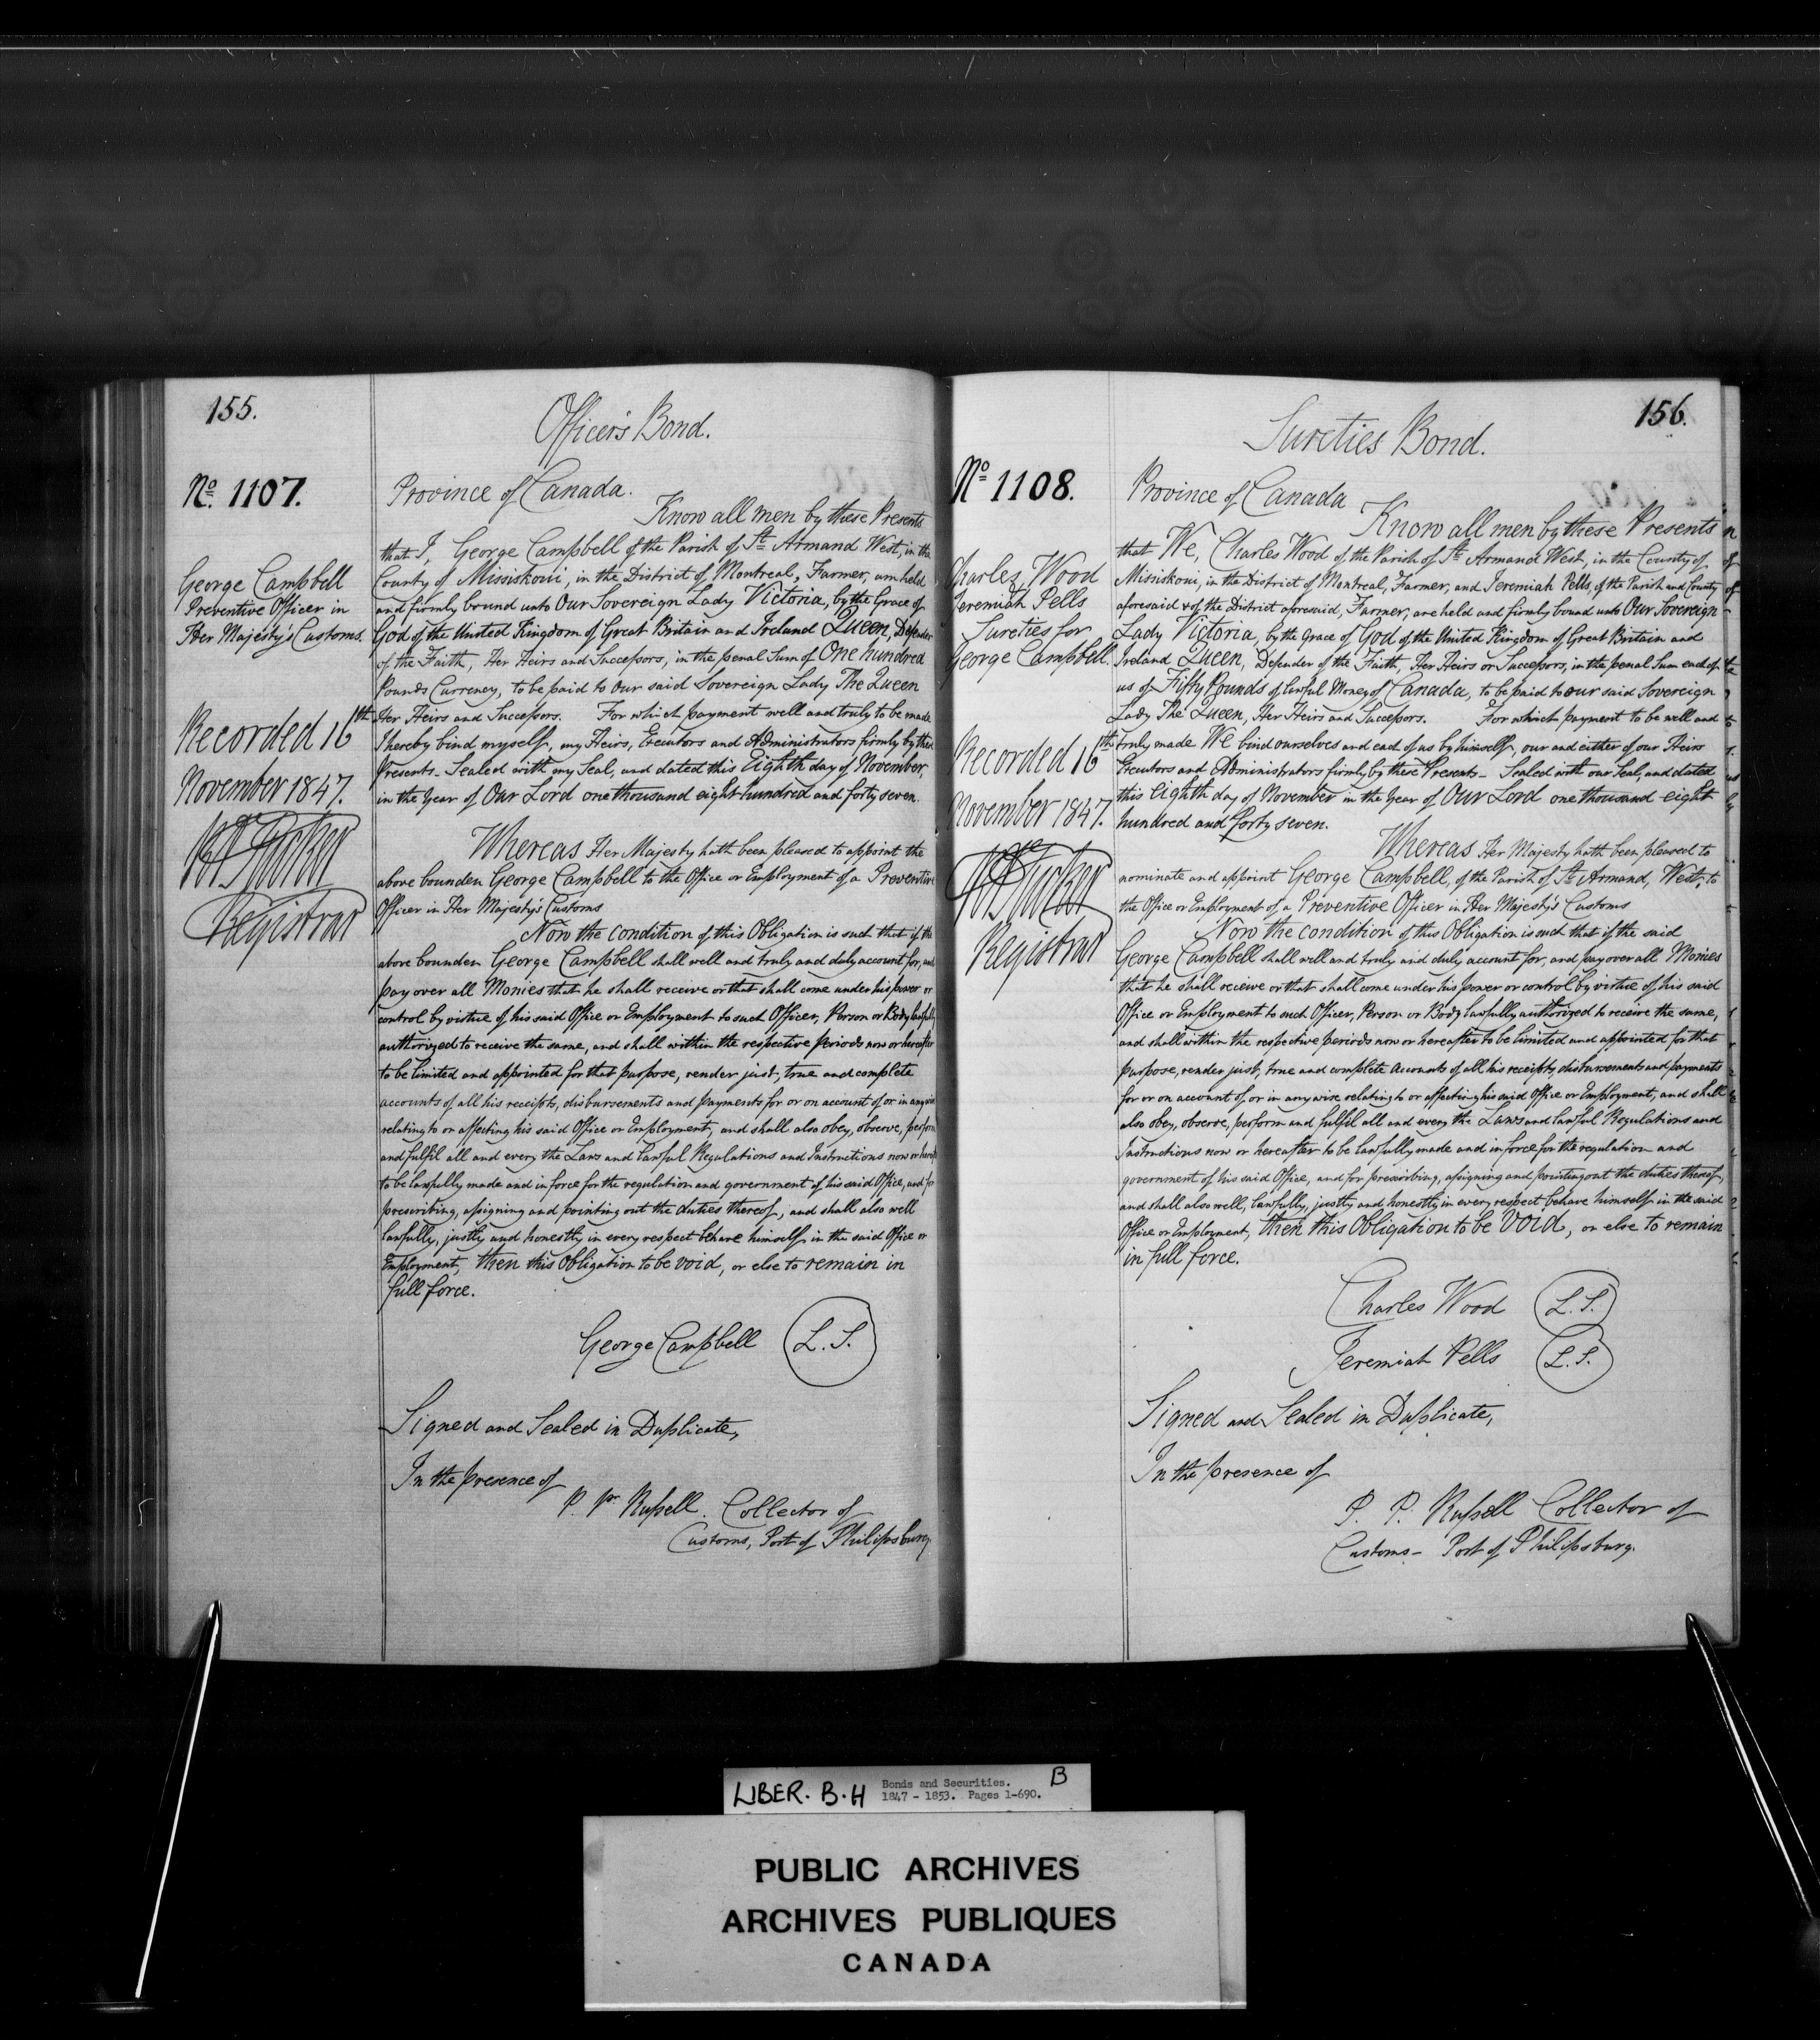 155.
Officer's Bond.
No. 1107.
George Campbell
Preventive Officer in
Her Majesty's Customs.
Recorded 16th
November 1847.
Registrar
Province of Canada.
Know all men by these Presents
that I, George Campbell of the Parish of St. Armand West, in the
County of Missiskoui, in the District of Montreal, Farmer, am held
and firmly bound unto Our Sovereign Lady Victoria, by the Grace of
God of the United Kingdom of Great Britain and Ireland Queen, Defender
of the Faith, Her Heirs and Successors, in the penal Sum of One hundred
Pounds Currency, to be paid to our said Sovereign Lady The Queen
Her Heirs and Successors. For which payment well and truly to be made
I hereby bind myself, my Heirs, Executors and Administrators firmly by these
Presents_ Sealed with my Seal, and dated this Eighth day of November,
in the Year of Our Lord one thousand eight hundred and forty seven.
Whereas Her Majesty hath been pleased to appoint the
above bounden George Campbell to the Office or Employment of a Preventive
Officer in Her Majesty's Customs
Now the condition of this Obligation is such that if the
above bounden George Campbell shall well and truly and duly account for, and
pay over all Monies that he shall receive or that shall come under his power or
control by virtue of his said Office or Employment to such Officer, Person or Body lawfully
authorized to receive the same, and shall within the respective periods now or hereafter
to be limited and appointed for that purpose, render just, true and complete
accounts of all his receipts, disbursements and payments for or on account of or in anywise
relating to or affecting his said Office or Employment, and shall also obey, observe, perform
and fulfil all and every the Laws and lawful Regulations and Instructions now or hereafter
to be lawfully made and in force for the regulation and government of his said Office, and for
prescribing, assigning and pointing out the duties thereof, and shall also well
lawfully, justly and honestly in every respect behave himself in the said Office or
Employment, then this Obligation to be void, or else to remain in
full force.
George Campbell L.S.
Signed and Sealed in Duplicate,
In the presence of
P. Pr Russell. Collector of
Customs, Port of Philipsburg.
156.
Sureties Bond.
No. 1108.
Charles Wood
Jeremiah Pells
Sureties for
George Campbell.
Recorded 16th
November 1847.
Registrar
Province of Canada
Know all men by these Presents
that We, Charles Wood of the Parish of St. Armand West, in the County of
Missiskoui, in the District of Montreal, Farmer, and Jeremiah Pells, of the Parish and County
aforesaid & of the District aforesaid, Farmer, are held and firmly bound unto Our Sovereign
Lady Victoria, by the Grace of God of the United Kingdom of Great Britain and
Ireland Queen, Defender of the Faith, Her Heirs or Successors, in the penal Sum each of
us of Fifty Pounds of lawful Money of Canada, to be paid to our said Sovereign
Lady The Queen, Her Heirs and Successors. For which payment to be well and
truly made We bind ourselves and each of us by himself, our and either of our Heirs
Executors and Administrators firmly by these Presents_ Sealed with our Seal, and dated
this eighth day of November in the Year of Our Lord one thousand eight
hundred and forty seven.
Whereas Her Majesty hath been pleased to
nominate and appoint George Campbell, of the Parish of St. Armand, West, to
the Office or Employment of a Preventive Officer in Her Majesty's Customs
Now the condition of this Obligation is such that if the said
George Campbell shall well and truly and duly account for, and pay over all Monies
that he shall receive or that shall come under his power or control by virtue of his said
Office or Employment to such Officer, Person or Body lawfully authorized to receive the same,
and shall within the respective periods now or hereafter to be limited and appointed for that
purpose, render just, true and complete Accounts of all his receipts, disbursements and payments
for or on account of or in any wise relating to or affecting his said Office or Employment, and shall
also obey, observe, perform and fulfil all and every the Laws and lawful Regulations and
Instructions now or hereafter to be lawfully made and in force for the regulation and
government of his said Office, and for prescribing, assigning and pointing out the duties thereof,
and shall also well, lawfully, justly and honestly in every respect behave himself in the said
Office or Employment, then this Obligation to be void, or else to remain
in full force.
Charles Wood L.S.
Jeremiah Pells L.S.
Signed and Sealed in Duplicate,
In the presence of
P. P. Russell Collector of
Customs_ Port of Philipsburg.
LIBER. B.H Bonds and Securities. B
1847 - 1853. Pages 1-690.
PUBLIC ARCHIVES
ARCHIVES PUBLIQUES
CANADA